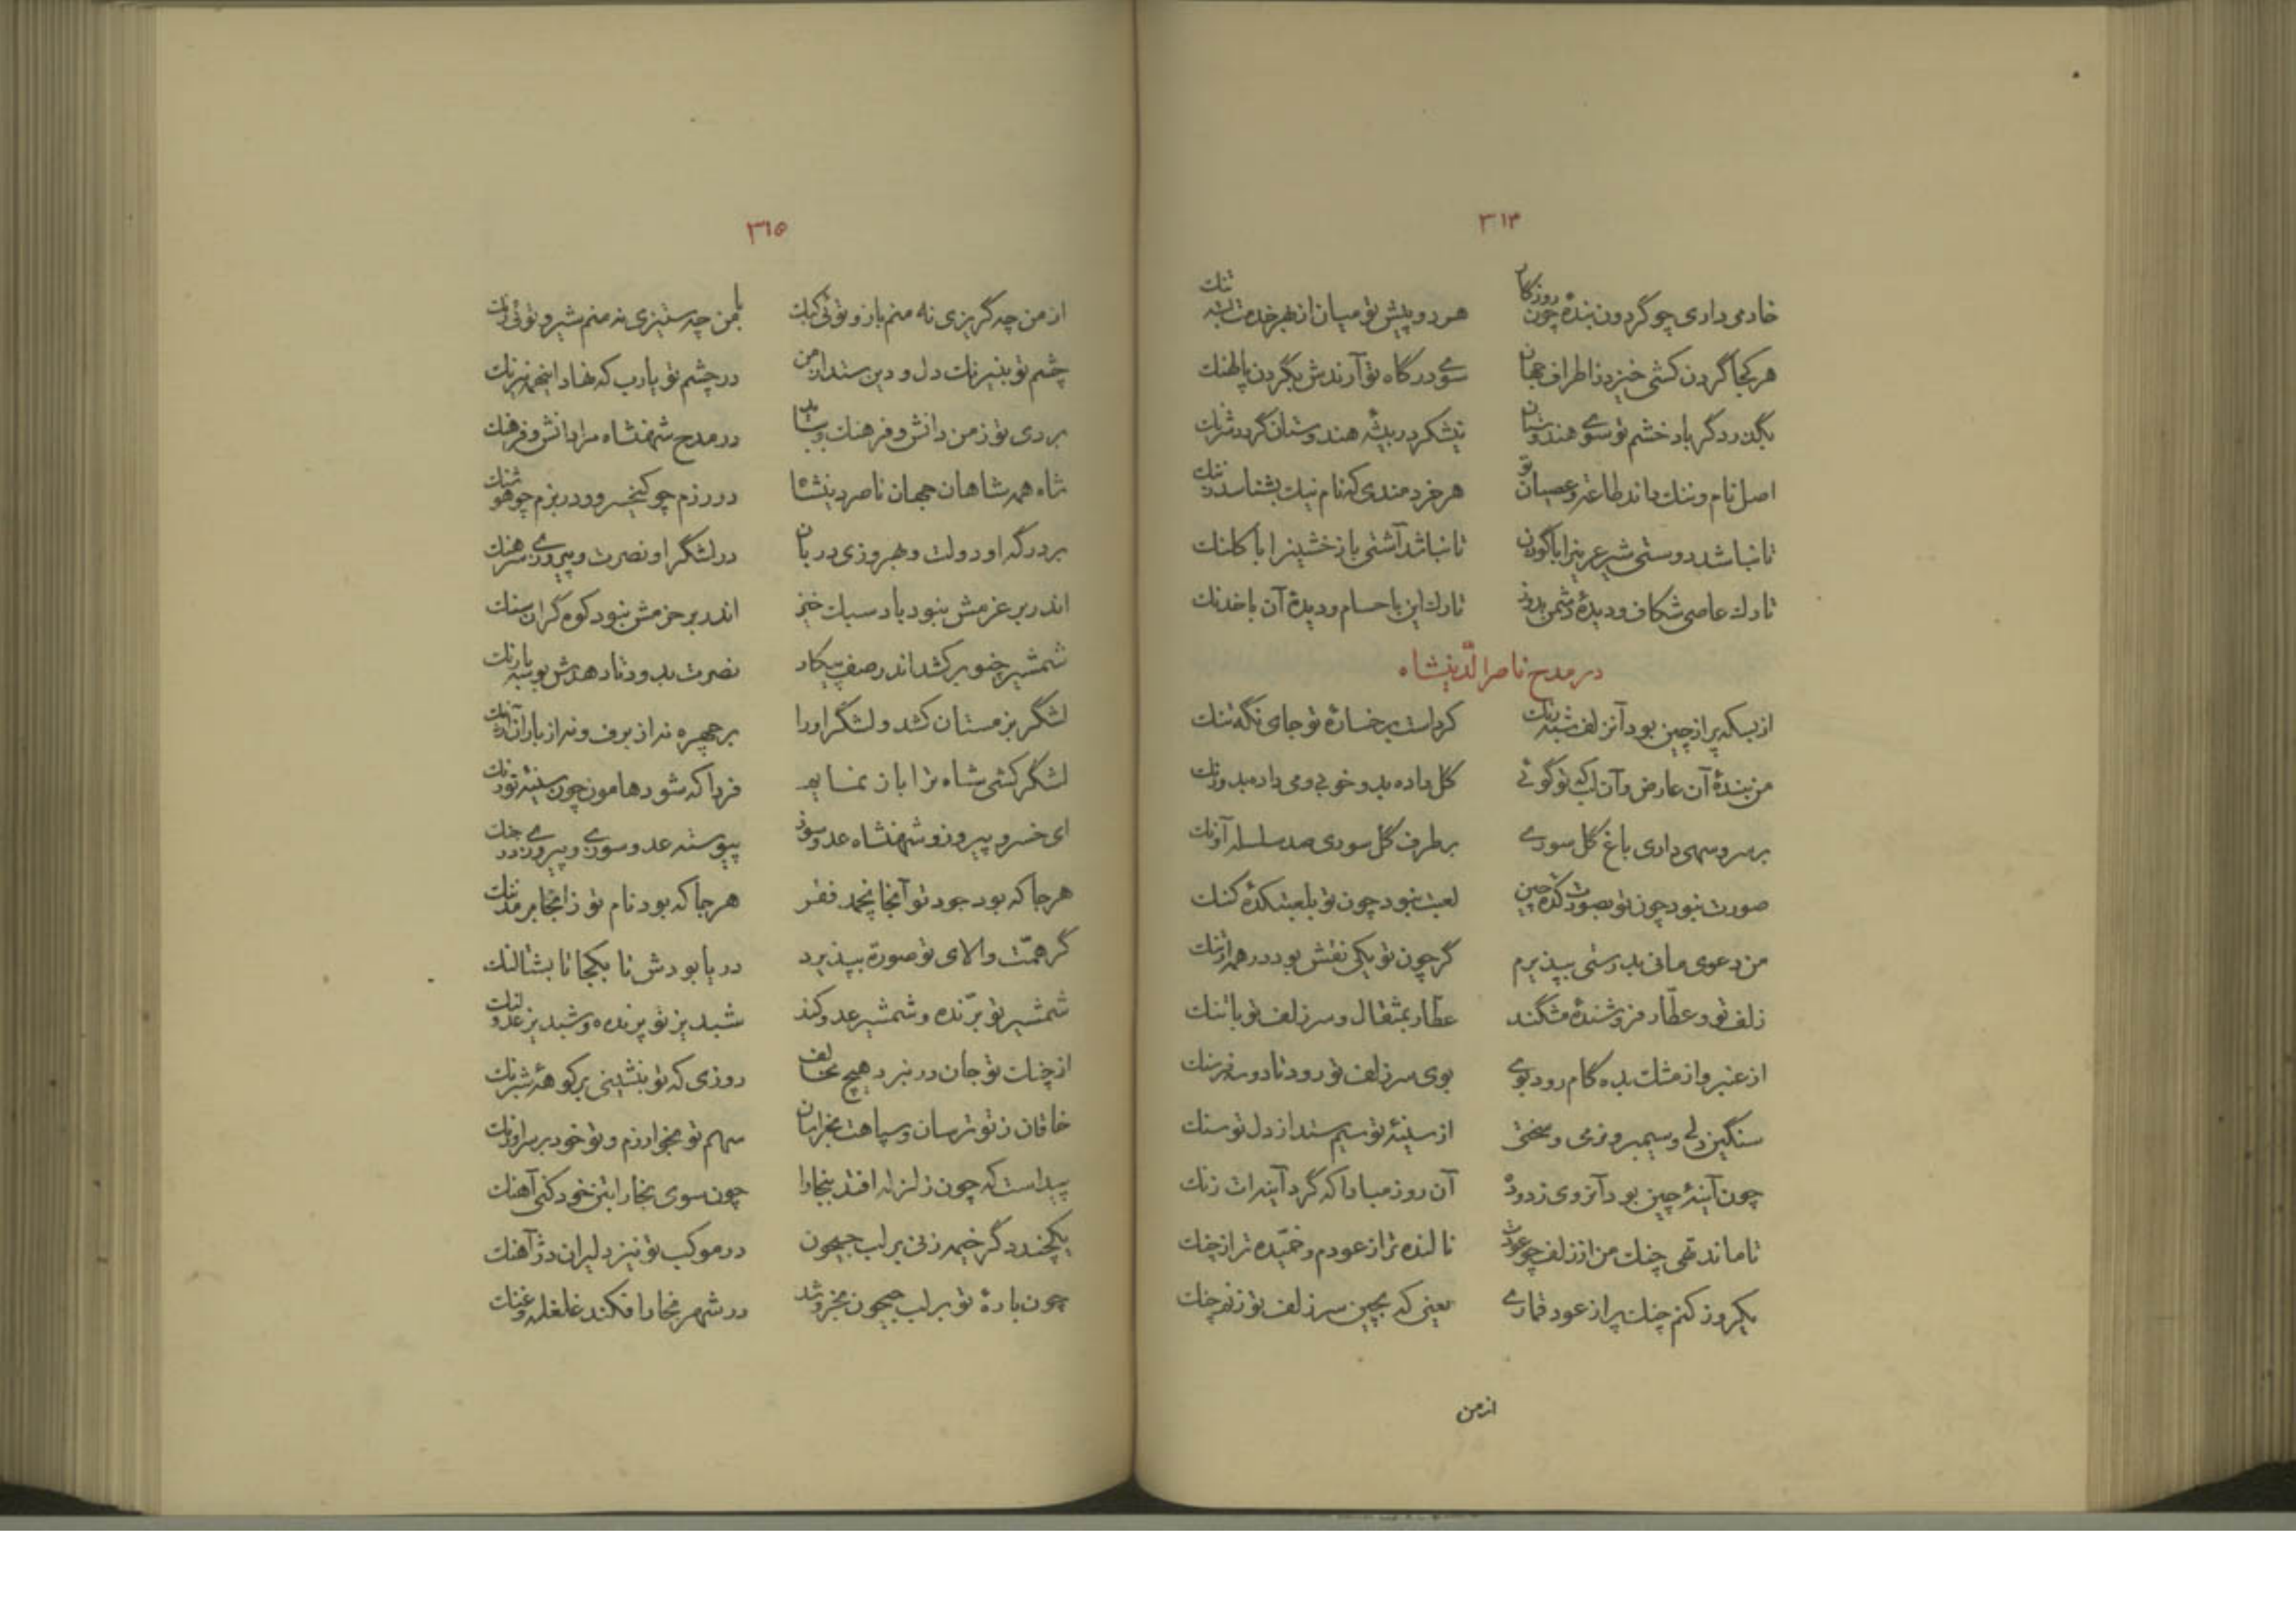 ۳۱۴
خادمی داری چو گردون بنده چون روزگار هر دو پیش تو میان از بهر خدمت بسته تنك
هر کجا گردن کشی خیزد ز اطراف جهان سوی درگاه تو آرندش بگردن پالهنك
بگذرد گر باد خشم تو سوی هندوستان نیشکر در بیشه هندوستان گردد شرنك
اصل نام و ننك داند طاعت و عصیان تو هر خردمندی که نام نیك بشناسد ز ننك
تا نباشد دوستی شیر عرین را با گوزن تا نباشد آشتی باز خشین را با کلنك
تارك عاصی شکاف و دیدهٔ دشمن بدوز تارك این با حسام و دیدهٔ آن با خدنك
در مدح ناصر الدینشاه
از بسکه پر از چین بود آن زلف شبه رنك کرد است بر خسارهٔ تو جای نگه تنك
من بندهٔ آن عارض و آن لب که تو گوئی گل داده بدو خوبی و می داده بدو رنك
بر سرو سهی داری باغ گل سوری بر طرف گل سوری صد سلسله آونك
صورت نبود چون تو بصورت کده چین لعبت نبود چون تو بلعبتکدهٔ کنك
من دعوی مانی بدرستی بپذیرم گر چون تو یکی نقش بود در همه ارتنك
زلف تو و عطّار فروشندهٔ مشگند عطّار بمثقال و سر زلف تو با تنك
از عنبر و از مشك بده کام رود بوی بوی سر زلف تو رود تا دو سه فرسنك
سنگین دلی و سیمبر و نرمی و سختی از سینهٔ تو سیم ستد از دل تو سنك
چون آینهٔ چین بود آن روی زدوده آن روز مبادا که گرد آینه ات زنك
تا ماند تهی چنك من از زلف چو عودت نالنده تر از عودم و خمّیده تر از چنك
یکروز کنم چنك پر از عود قماری یعنی که بچین سر زلف تو زنم چنك
از من
۳۱۵
از من چه گریزی نه منم باز و توئی کبك با من چه ستیزی نه منم شیر و توئی رنك
چشم تو بنیرنك دل و دین ستد از من در چشم تو یا رب که نهاد اینهمه نیرنك
بردی تو ز من دانش و فرهنك در مدح شهنشاه مرا دانش و فرهنك
شاه همه شاهان جهان ناصر دینشاه در رزم چو کیخسرو و در بزم چو هوشنك
بر درگه او دولت و بهروزی دربان در لشگر او نصرت و پیروزی سرهنك
اندر بر عزمش نبود باد سبك خیز اندر بر حزمش نبود کوه گران سنك
شمشیر چو بر کشد اندر صف پیکار نصرت بدود تا دهدش بوسه
لشگر بزمستان کشد و لشگر او را بر چهره نه از برف و نه از باران آژنك
لشگر کشی شاه ترا باز نماید فردا که شود هامون چون سینهٔ تورنك
ای خسرو پیروز و شهنشاه عدو سوز پیوسته عدو سوزی و پیروزی در جنك
هر جا که بود جود تو آنجا نچمد فقر هر جا که بود نام تو زانجا برمد ننك
گر همّت والای تو صورة بپذیرد دریا بودش تا بکجا تا بشتالنك
شمشیر تو برّنده و شمشیر عدو کند شبدیز تو پرنده و شبدیز عدو لنك
از چنك تو جان در نبرد هیچ مخالف روزی که تو بنشینی بر کوههٔ شبرنك
خاقان ز تو ترسان و سپاهت بخراسان سهم تو بخوارزم و تو خود بر سر اورنك
پیداست که چون زلزله افتد ببخارا چون سوی بخارا بتن خود کنی آهنك
یکچند دگر خیمه زنی بر لب جیحون در موکب تو نیز دلیران دژ آهنك
چون بارهٔ تو بر لب جیحون بخروشد در شهر بخارا فکند غلغله و غنك